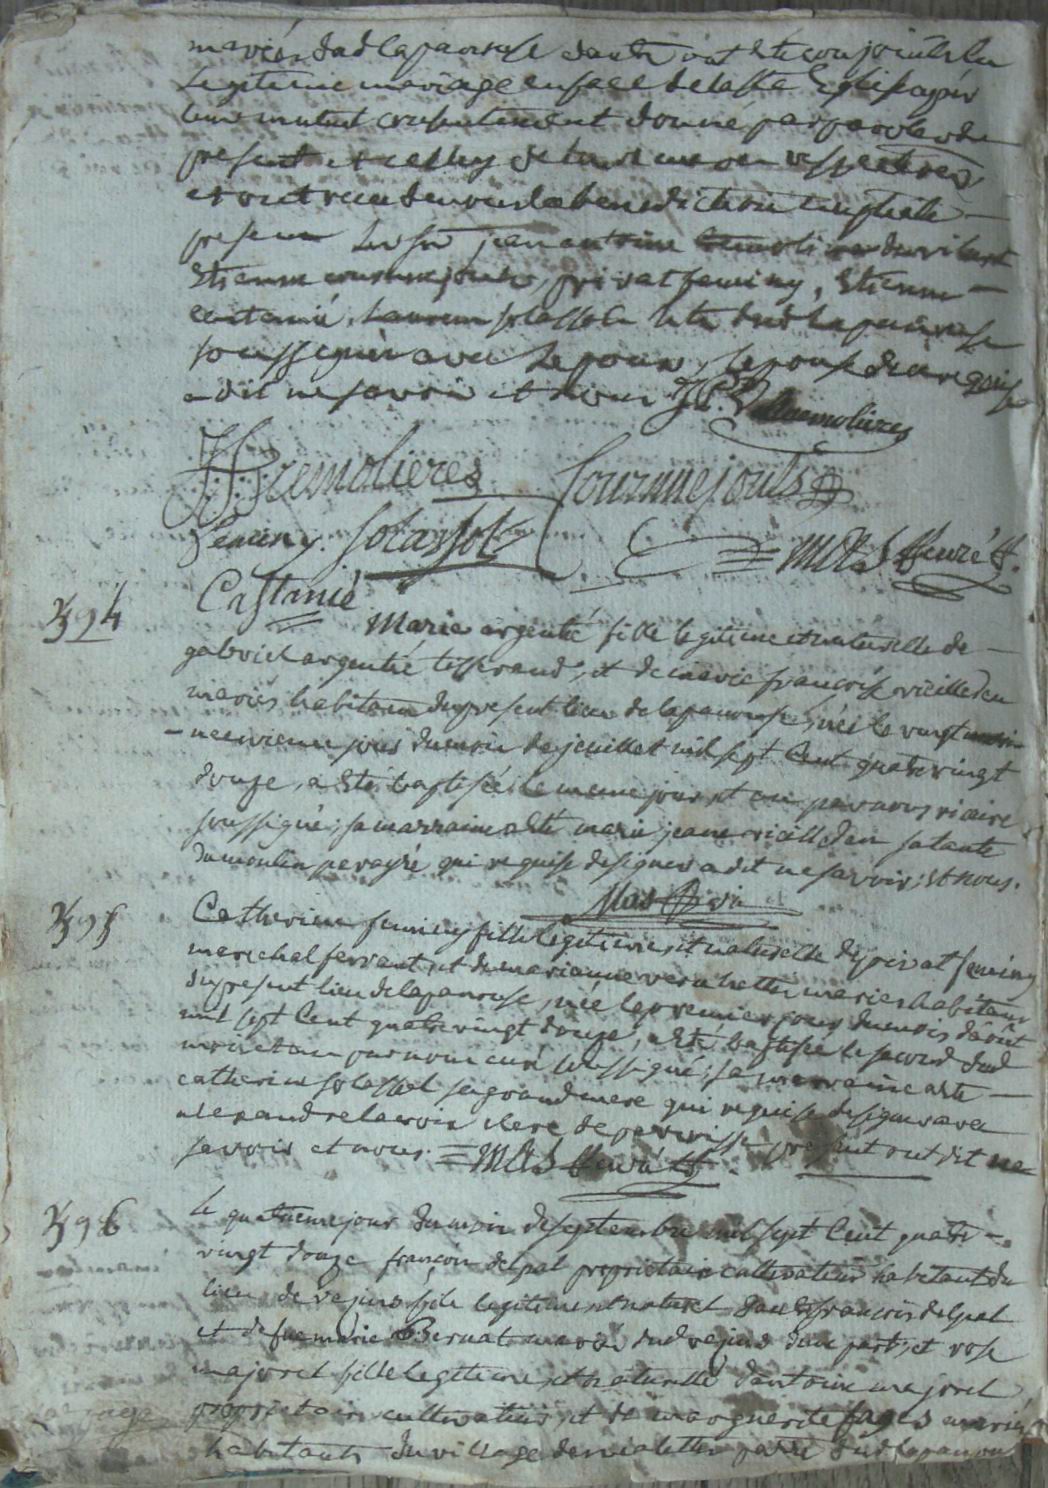 mariés dud lapanouse dautre ont été conjoints en
legitime mariage en face de la ste Eglise après
leur mutuel consentement donné par paroles de
present et celluy de leurs
et ont receu de nous la benediction nuptiale
presens les srs jean antoine tremolieres du vilaret
Etienne cournuejouls, privat feminy, Etienne
castanié, laurens solassol tous dud lapanouse
soussignés avec lepoux, lepouse de ce requise
a dit ne savoir et nous J. P. Tremolieres
Tremolieres Cournuejouls
feminy. Solassol = MAS Curé
Castanié
394 Marie argentié fille legitime et naturelle de
gabriel argentié tisserand, et de marie françoise vieilledent
mariés habitans du present lieu de lapanouse, née le vingt
neuvieme jour du mois de jeuillet mil sept cent quatre vingt
douze, a été baptisée le meme jour et an par nous vicaire
soussigné; sa marraine a été marie jeane vieilledent sa tante
du moulin perayré qui requise de signer a dit ne savoir; et nous.
Mas
395 Catherine feminy fille legitime et naturelle de privat feminy
marechal ferrant, et de marianne mariés habitans
du present lieu de lapanouse, née le premier jour du mois d'août
mil sept cent quatre vingt douze, a été baptisée le second dud
mois et an par nous curé soussigné; sa marraine a été
catherine solassol sa grand mere qui requise de signer avec
alexandre lacroix clerc de paroisse present ont dit ne
savoir et nous. = MAS Curé
396 le quatrieme jour du mois de septembre mil sept cent quatre
vingt douze françois delpal proprietaire cultivateur habitant du
lieu de vejus fils legitime et naturel dautre françois delpal
et de fue marie Bernat mariés dud vejus dune part, et rose
majorel fille legitime et naturelle dantoine majorel
proprietaire cultivateur et de marguerite fages mariés
habitants du village de passe dud lapanouse